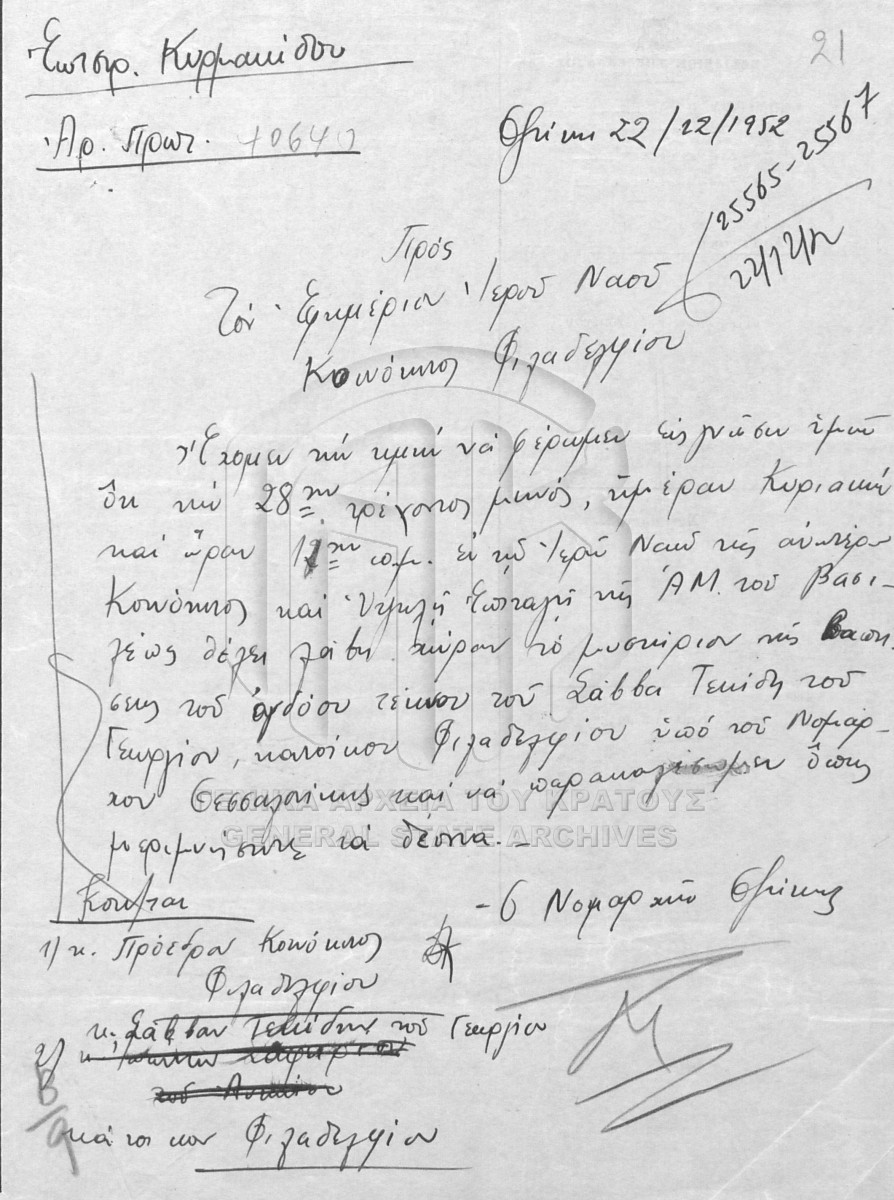 21
Ἐπιστρ. Κυρμακίδου
Ἀρ. Πρωτ. 70640
Θ/νίκη 22/12/1952
25565-25567
22/12/52
Πρός
Τόν Ἐφημέριον Ἱεροῦ Ναοῦ
Κοινότητος Φιλαδελφίου
Ἔχομεν τήν τιμήν νά φέρωμεν εἰς γνῶσιν ὑμῶν
ὅτι τήν 28ην τρέχοντος μηνός, ἡμέραν Κυριακήν
καί ὥραν 11ην π.μ. ἐν τῷ Ἱερῷ Ναῷ τῆς ἀνωτέρω
Κοινότητος καί Ὑψηλῇ Ἐπιταγῇ τῆς Α.Μ. τοῦ Βασι-
λέως θέλει λάβει χώραν τό μυστήριον τῆς βαπτί
σεως τοῦ ὀγδόου τέκνου τοῦ Σάββα Τεκίδη τοῦ
Γεωργίου, κατοίκου Φιλαδελφίου ὑπό τοῦ Νομάρ-
χου Θεσσαλονίκης καί νά παρακαλέσωμεν ὅπως
μεριμνήσητε τά δέοντα.-
Κοιν/ται
- Ὁ Νομάρχης Θ/νίκης
1) κ. Πρόεδρον Κοινότητος
Φιλαδελφίου
2) κ. Σάββαν Τεκίδην τοῦ Γεωργίου
κάτοικον Φιλαδελφίου
ΓΕΝΙΚΑ ΑΡΧΕΙΑ ΤΟΥ ΚΡΑΤΟΥΣ
GENERAL STATE ARCHIVES